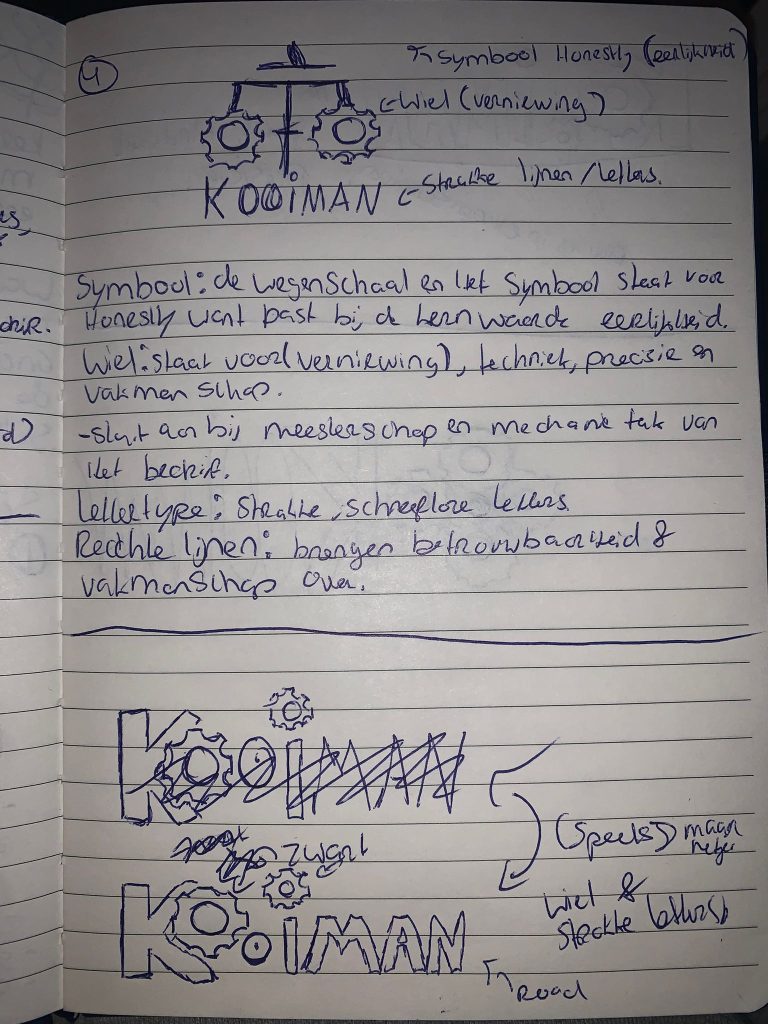 4
↖ Symbool Honestly (eerlijkheid)
← Wiel (verniewing)
KOOiMAN ← Strakke lijnen / letters.
Symbool: de wegenschaal en het Symbool staat voor
Honestly want past bij de kern waarde eerlijkheid.
Wiel: staat voor (verniewing), techniek, precisie en
vakmanschap.
- sluit aan bij meesterschap en mechanie tak van
het bedrif.
Lettertype: Strakke, schreeflore letters.
Rechte lijnen: brengen betrouwbaarheid &
vakmanschap over.
KOOiMAN
(speels) maar
netjes
zwart
KOiMAN
Wiel &
strakke letters
rood